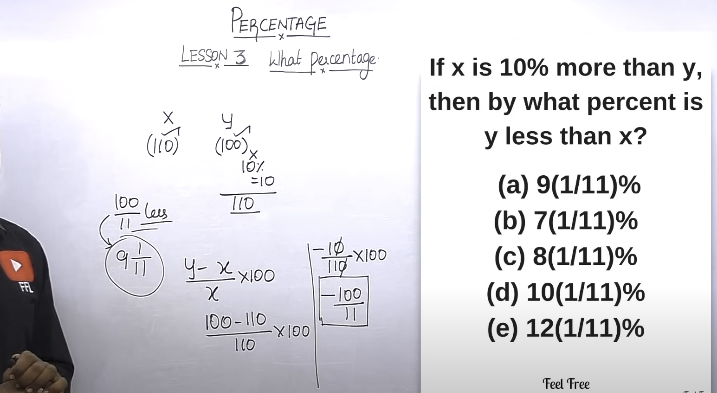 PERCENTAGE
LESSON 3 What percentage.
x y
(110) (100)
x 10%
=10
110
100/11 less
9 1/11
y - x / x ×100
100-110 / 110 ×100
-10/110 ×100
-100/11
FFL
If x is 10% more than y,
then by what percent is
y less than x?
(a) 9(1/11)%
(b) 7(1/11)%
(c) 8(1/11)%
(d) 10(1/11)%
(e) 12(1/11)%
Feel Free